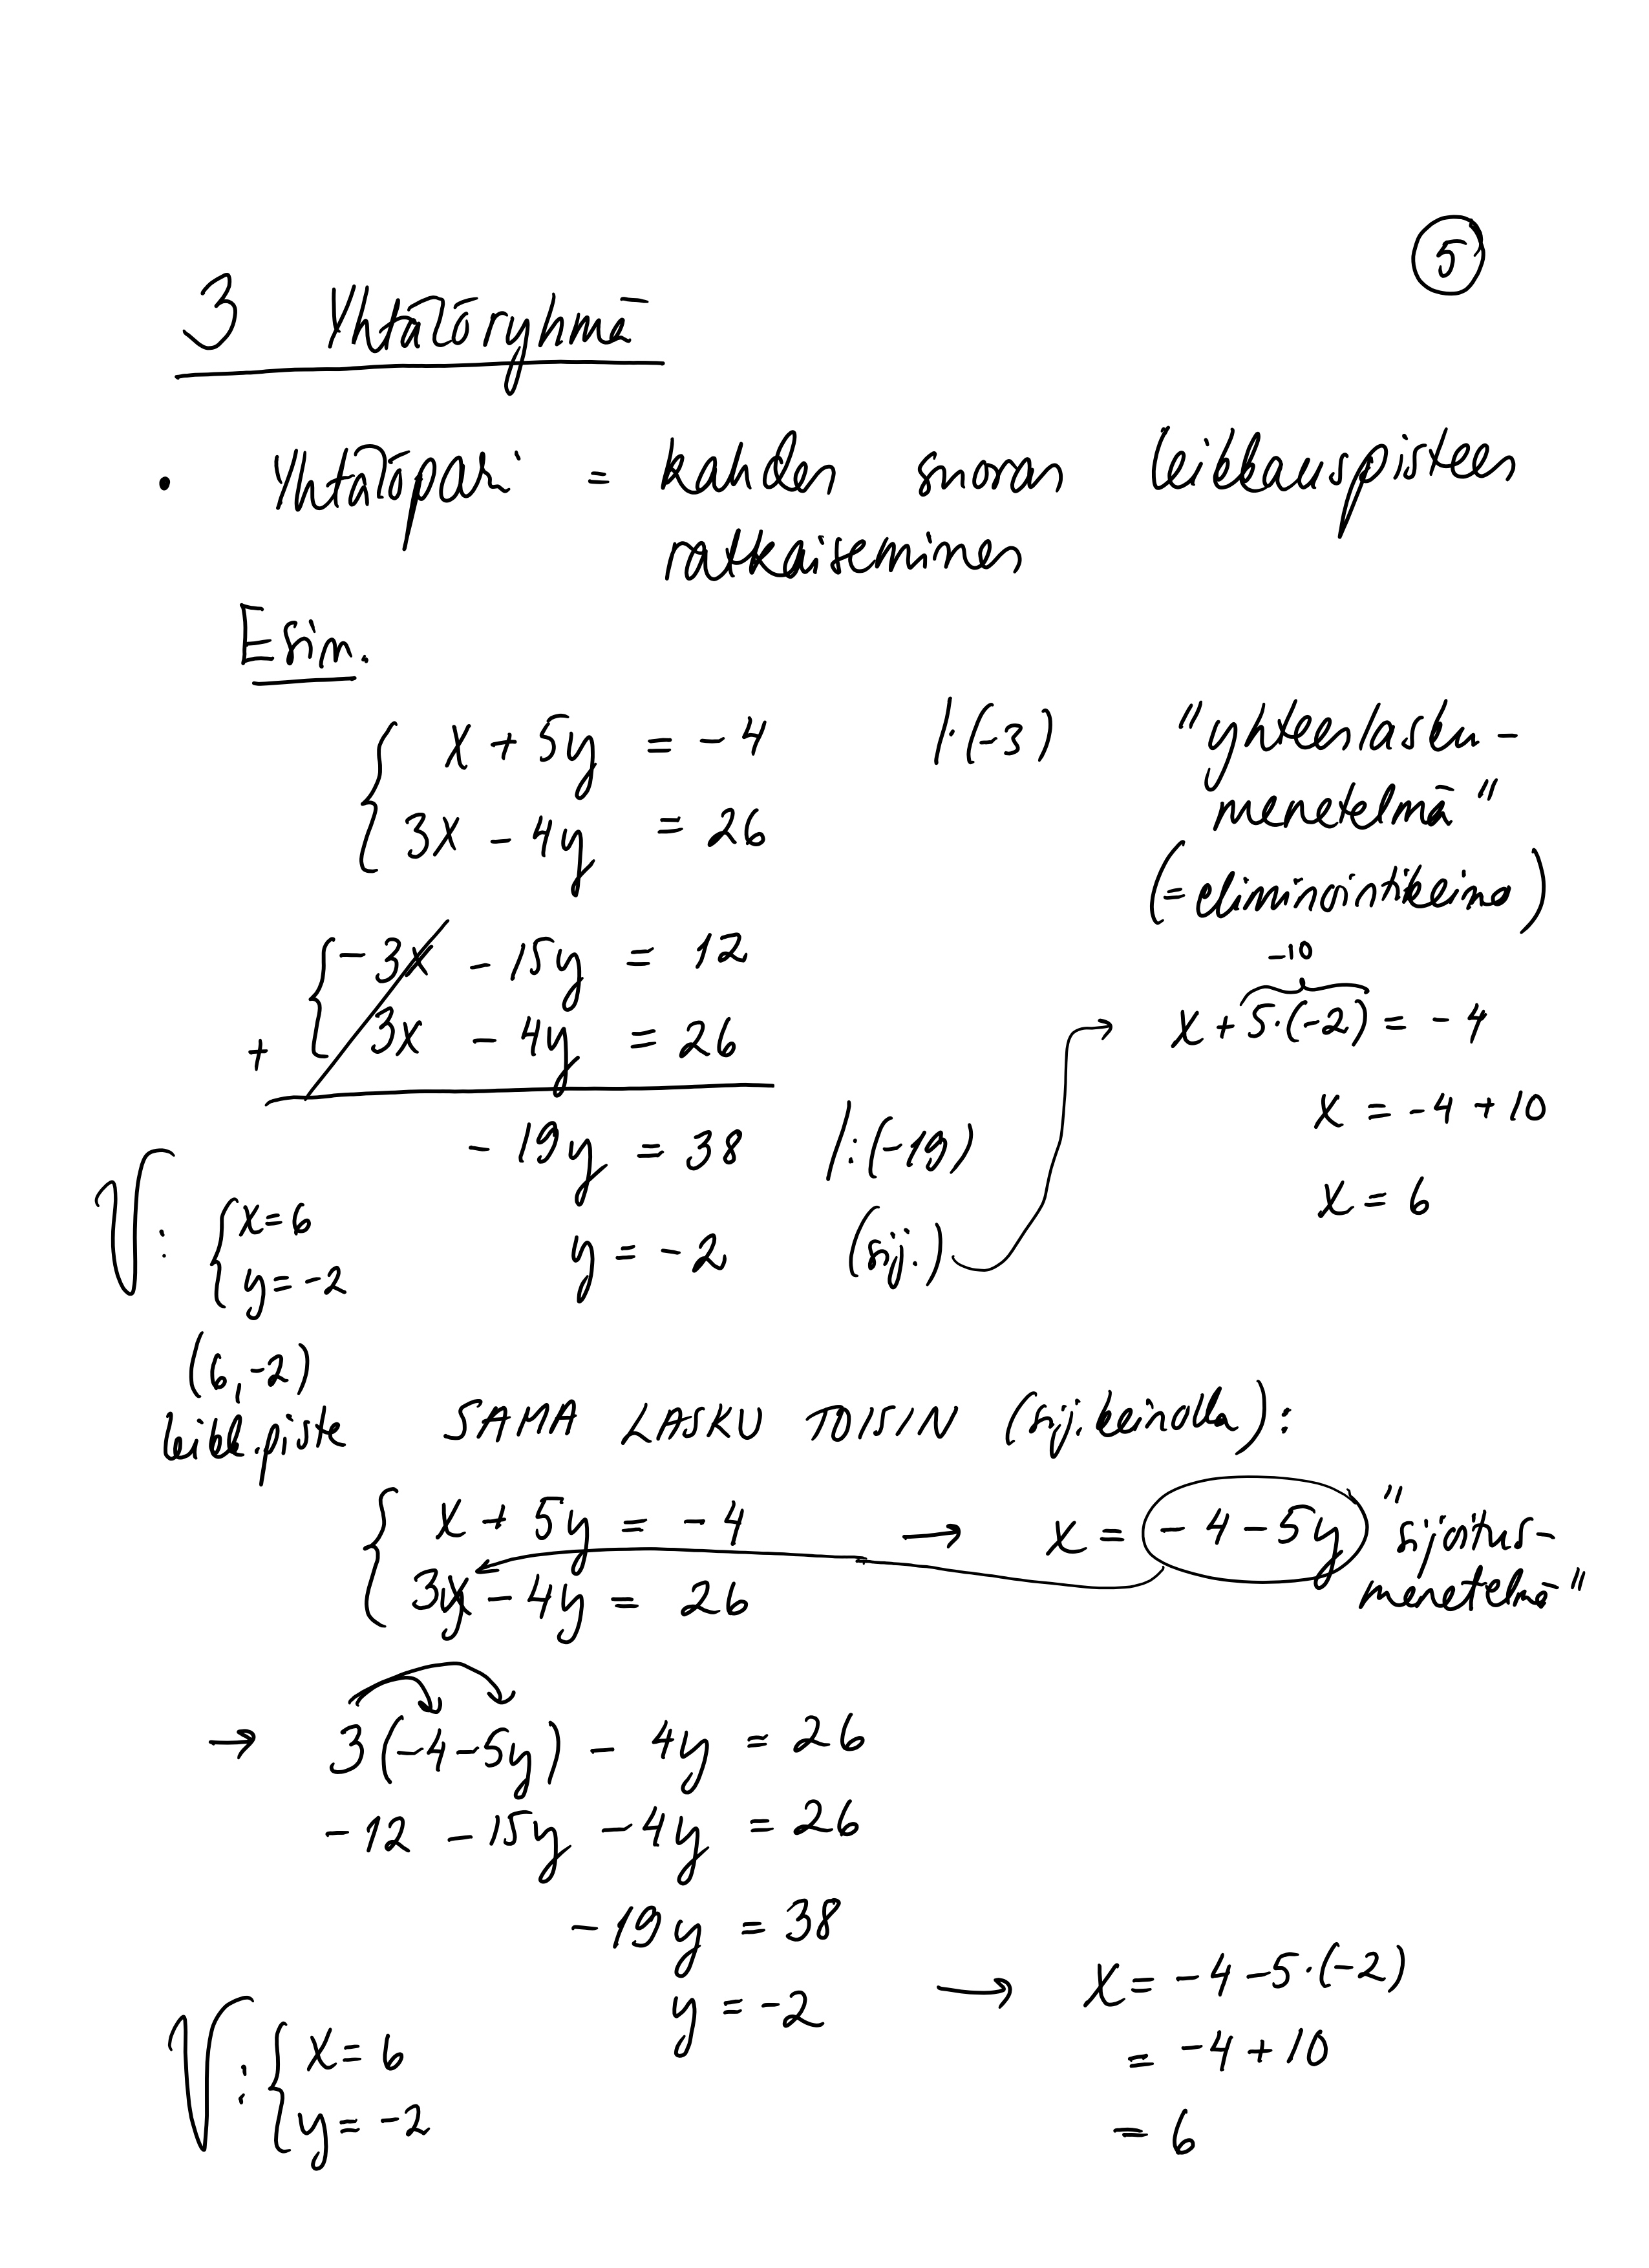 5
3 Yhtälöryhmä
• Yhtälöpari = kahden suoran leikkauspisteen
ratkaiseminen
Esim.
{ x + 5y = -4 |·(-3)
3x - 4y = 26
"yhteenlasku-
menetelmä"
(= eliminointikeino)
{ -3x - 15y = 12
+ 3x - 4y = 26
- 19y = 38 |:(-19)
y = -2 (sij.)
-10
x + 5·(-2) = -4
x = -4 + 10
x = 6
V: { x = 6
y = -2
(6, -2)
leikk.piste
SAMA LASKU TOISIN (sij.keinolla):
{ x + 5y = -4 → x = -4 - 5y
3x - 4y = 26
"sijoitus-
menetelmä"
→ 3(-4-5y) - 4y = 26
-12 - 15y - 4y = 26
-19y = 38
y = -2 → x = -4 - 5·(-2)
= -4 + 10
= 6
V: { x = 6
y = -2